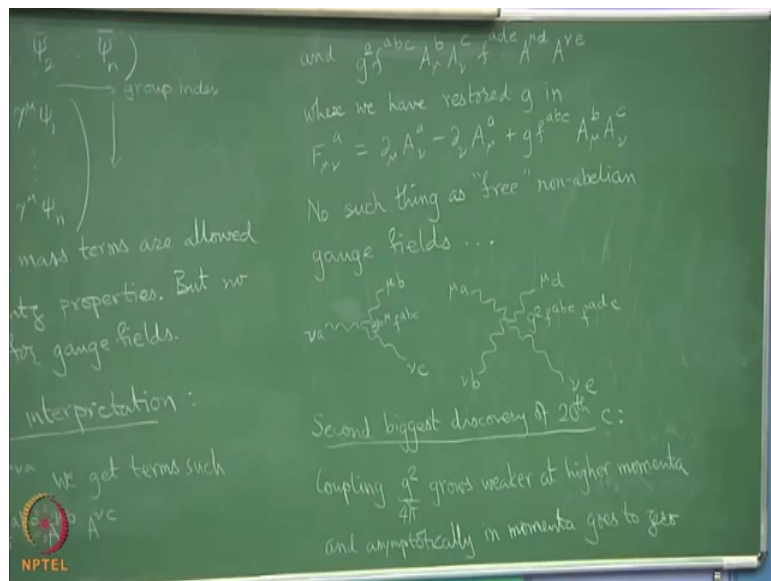 Ψ̄₂ .. Ψ̄ₙ)
group index
γ^μ Ψ₁
⋮
γ^μ Ψₙ
mass terms are allowed
ntz properties. But no
for gauge fields.
interpretation :
we get terms such
A^{νc}
and g² f^{abc} A_μ^b A_ν^c f^{ade} A^{μd} A^{νe}
where we have restored g in
F_{μν}^a = ∂_μ A_ν^a − ∂_ν A_μ^a + g f^{abc} A_μ^b A_ν^c
No such thing as "free" non-abelian
gauge fields ...
μb
νa
gp^μ f^{abc}
νc
μa
μd
g² f^{abc} f^{ade}
νb
νe
Second biggest discovery of 20th c:
Coupling g²/4π grows weaker at higher momenta
and asymptotically in momenta goes to zero
NPTEL